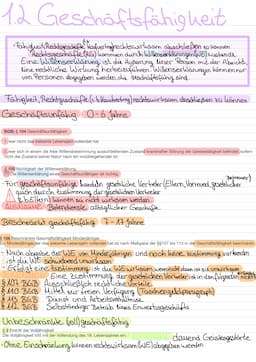 1.2 Geschäftsfähigkeit
Fähigkeit, Rechtsgeschäfte (Kaufvertrag) rechtswirksam abschließen zu können
Rechtsgeschäfte (RG) kommen durch Willenserklärungen (WE) zustande.
Eine Willenserklärung ist die Äußerung einer Person mit der Absicht,
eine rechtliche Wirkung herbeizuführen. Willenserklärungen können nur
von Personen abgegeben werden die geschäftsfähig sind.
Fähigkeit, Rechtsgeschäfte (z.B. Kaufvertrag) rechtswirksam abschließen zu können
Geschäftsunfähig 0-6 Jahre
BGB § 104 Geschäftsunfähigkeit
wer nicht das siebente Lebensjahr vollendet hat
wer sich in einem die freie Willensbestimmung ausschließenden Zustand krankhafter Störung der Geistestätigkeit befindet, sofern
nicht der Zustand seiner Natur nach ein vorübergehender ist
§ 105 Nichtigkeit der Willenserklärung
Die Willenserklärung eines Geschäftsunfähigen ist nichtig.
Für geschäftsunfähige handeln gesetzliche Vertreter (Eltern, Vormund, gesetzlicher
auch durch Zustimmung der gesetzlichen Vertreter
(z.B. Eltern) können sie nicht wirksam werden
Ausnahme: Botendienste, alltäglicher Geschäfte
Beschränkt geschäftsfähig 7-17 Jahre
§ 106 Beschränkte Geschäftsfähigkeit Minderjähriger
Ein Minderjähriger, der das siebente Lebensjahr vollendet hat, ist nach Maßgabe der §§ 107 bis 113 in der Geschäftsfähigkeit beschränkt.
Nach abgabe der WE vom Minderjährigen und noch keine Zustimmung vorhanden
ist die WE schwebend unwirksam
Erfolgt eine Zustimmung, ist die WE wirksam
Eine Zustimmung der gesetzlichen Vertreter ist in den folgenden
§ 107 BGB Ausschließlich rechtliche Vorteile
§ 110 BGB Mittel zur freien Verfügung (Taschengeldparagraph)
§ 113 BGB Dienst und Arbeitsverhältnisse
§ 112 BGB Selbständiger Betrieb eines Erwerbsgeschäfts
Unbeschränkte (voll) geschäftsfähig
§ 2 Eintritt der Volljährigkeit
Die Volljährigkeit tritt mit der Vollendung des 18. Lebensjahres ein.
dauernd Geistesgestörte
Ohne Einschränkung können rechtswirksam (WE) abgegeben werden